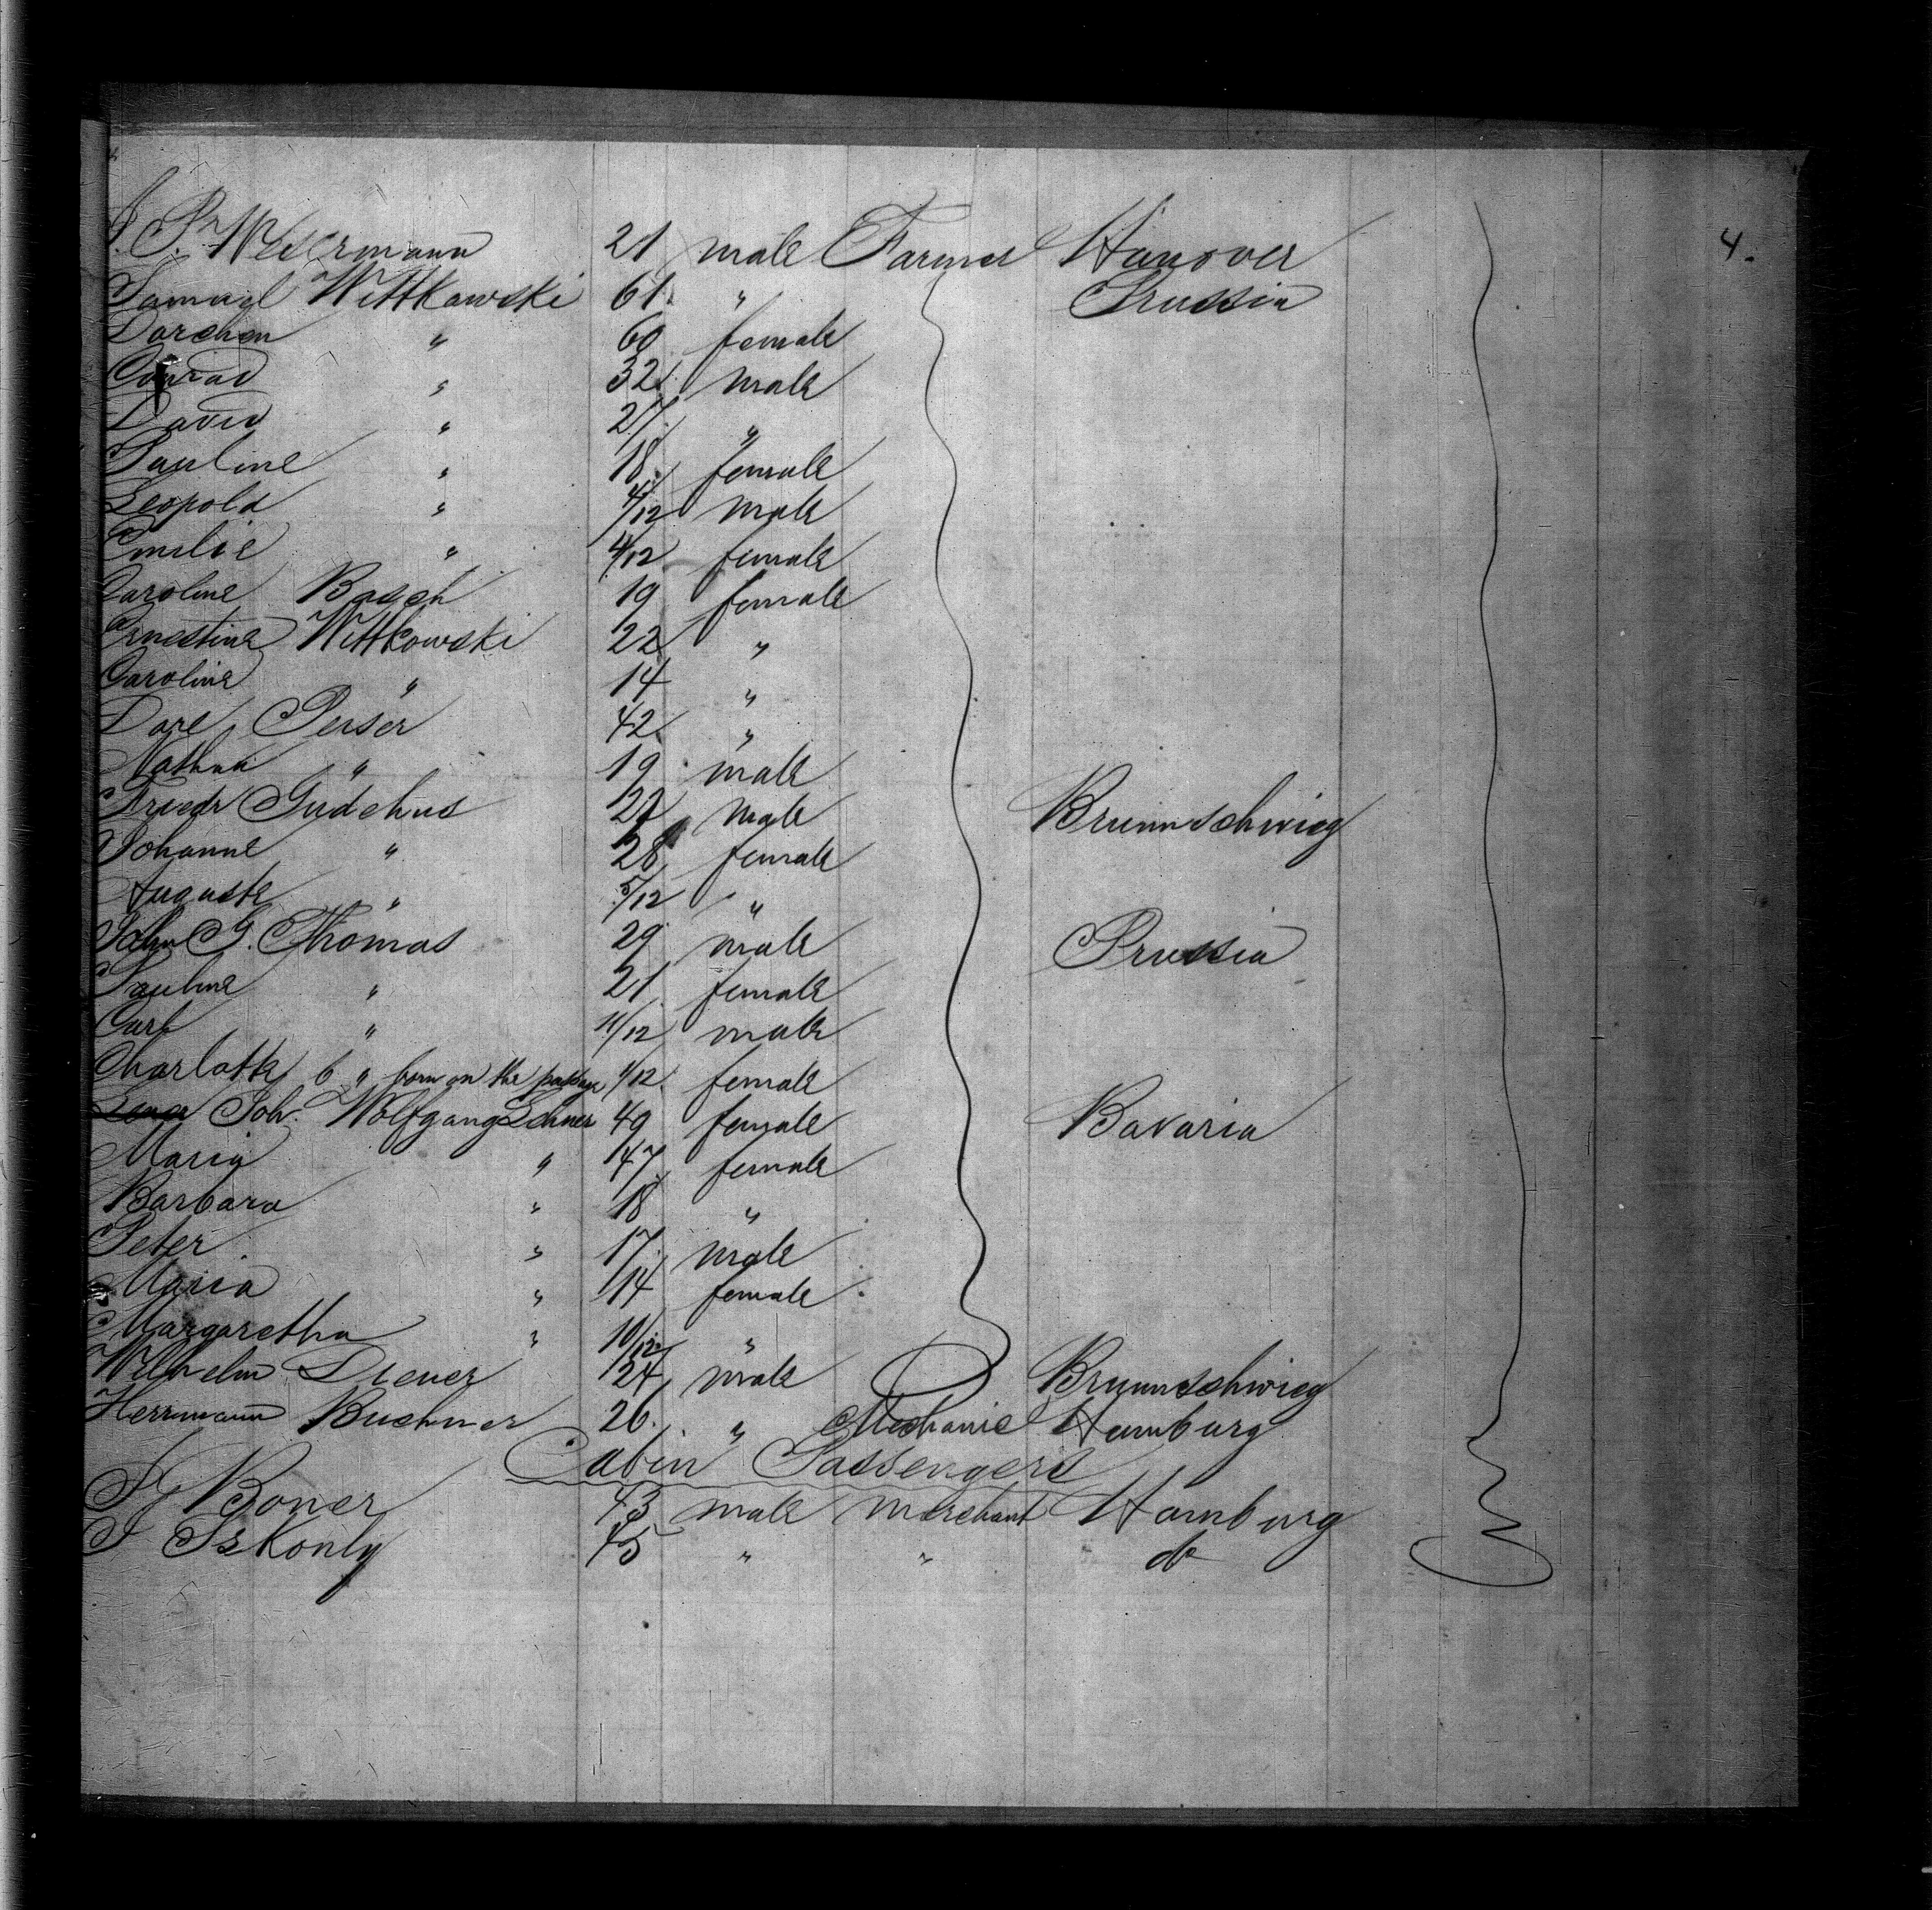 4.
J. Pr Wesermann 21 male Farmer Hanover
Samuel Wittkawski 61. " Prussia
Dorchen " 60 female
Conrad " 32. male
David " 27. "
Pauline " 18. female
Leopold " 4/12 male
Emilie " 4/12 female
Caroline Basch 19 female
Ernestine Wittkowski 22 "
Caroline " 14 "
Dore Perser 42. "
Nathan " 19 male
Friedr Gudehus 27 male Braunschwieg
Johanne " 28 female
Auguste " 5/12 "
John G. Thomas 29 male Prussia
Pauline " 21 female
Carl " 11/12 male
Charlotte " born on the passage 1/12. female
Joh. Wolfgang Lehner 49 female Bavaria
Maria " 47 female
Barbara " 18 "
Peter " 17. male
Maria " 14 female
Margaretha " 10/12 "
Wilhelm Diener 24 male Braunschwieg
Herrmann Buchner 26. " Mechanic Hamburg
Cabin Passengers
Boner 43 male merchant Hamburg
45 " " do